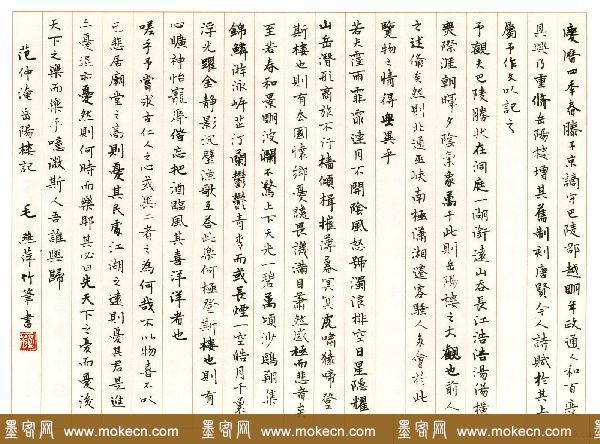 慶曆四年春滕子京謫守巴陵郡越明年政通人和百廢
具興乃重脩岳陽樓增其舊制刻唐賢今人詩賦於其上
屬予作文以記之
予觀夫巴陵勝狀在洞庭一湖銜遠山吞長江浩浩湯湯橫
無際涯朝暉夕陰氣象萬千此則岳陽樓之大觀也前人
之述備矣然則北通巫峽南極瀟湘遷客騷人多會於此
覽物之情得無異乎
若夫霪雨霏霏連月不開陰風怒號濁浪排空日星隱耀
山岳潛形商旅不行檣傾楫摧薄暮冥冥虎嘯猿啼登
斯樓也則有去國懷鄉憂讒畏譏滿目蕭然感極而悲者矣
至若春和景明波瀾不驚上下天光一碧萬頃沙鷗翔集
錦鱗游泳岸芷汀蘭鬱鬱青青而或長煙一空皓月千里
浮光躍金靜影沉璧漁歌互答此樂何極登斯樓也則有
心曠神怡寵辱偕忘把酒臨風其喜洋洋者也
嗟乎予嘗求古仁人之心或異二者之為何哉不以物喜不以
己悲居廟堂之高則憂其民處江湖之遠則憂其君是進
亦憂退亦憂然則何時而樂耶其必曰先天下之憂而憂後
天下之樂而樂乎噫微斯人吾誰與歸
范仲淹岳陽樓記 毛燕萍竹筆書
墨客网 墨客网 墨客网 墨客网
www.mokecn.com www.mokecn.com www.mokecn.com www.mokecn.com